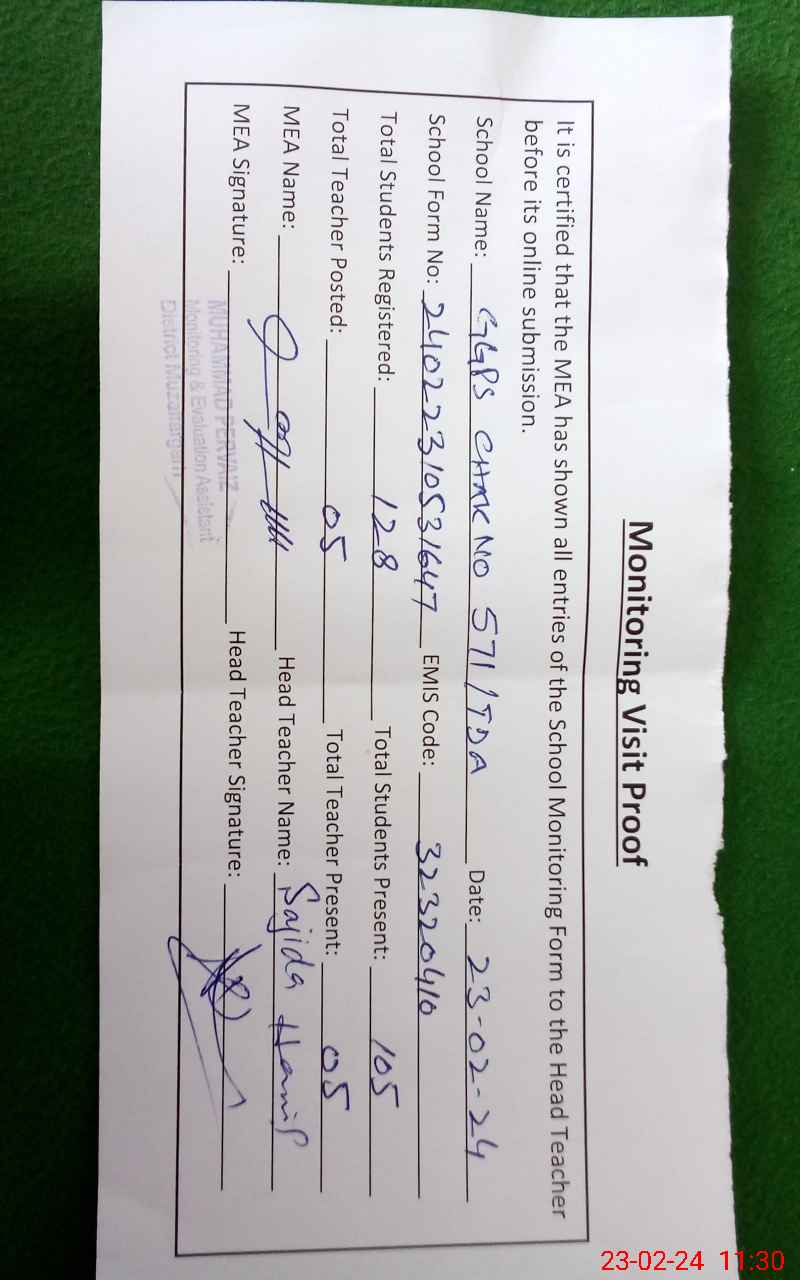 Monitoring Visit Proof
It is certified that the MEA has shown all entries of the School Monitoring Form to the Head Teacher
before its online submission.
School Name: GGPS CHAK NO 571/TDA Date: 23-02-24
School Form No: 24022310531647 EMIS Code: 32320410
Total Students Registered: 128 Total Students Present: 105
Total Teacher Posted: 05 Total Teacher Present: 05
MEA Name: Head Teacher Name: Sajida Hanif
MEA Signature: Head Teacher Signature:
MUHAMMAD PERVAIZ
Monitoring & Evaluation Assistant
District Muzaffargarh
23-02-24 11:30